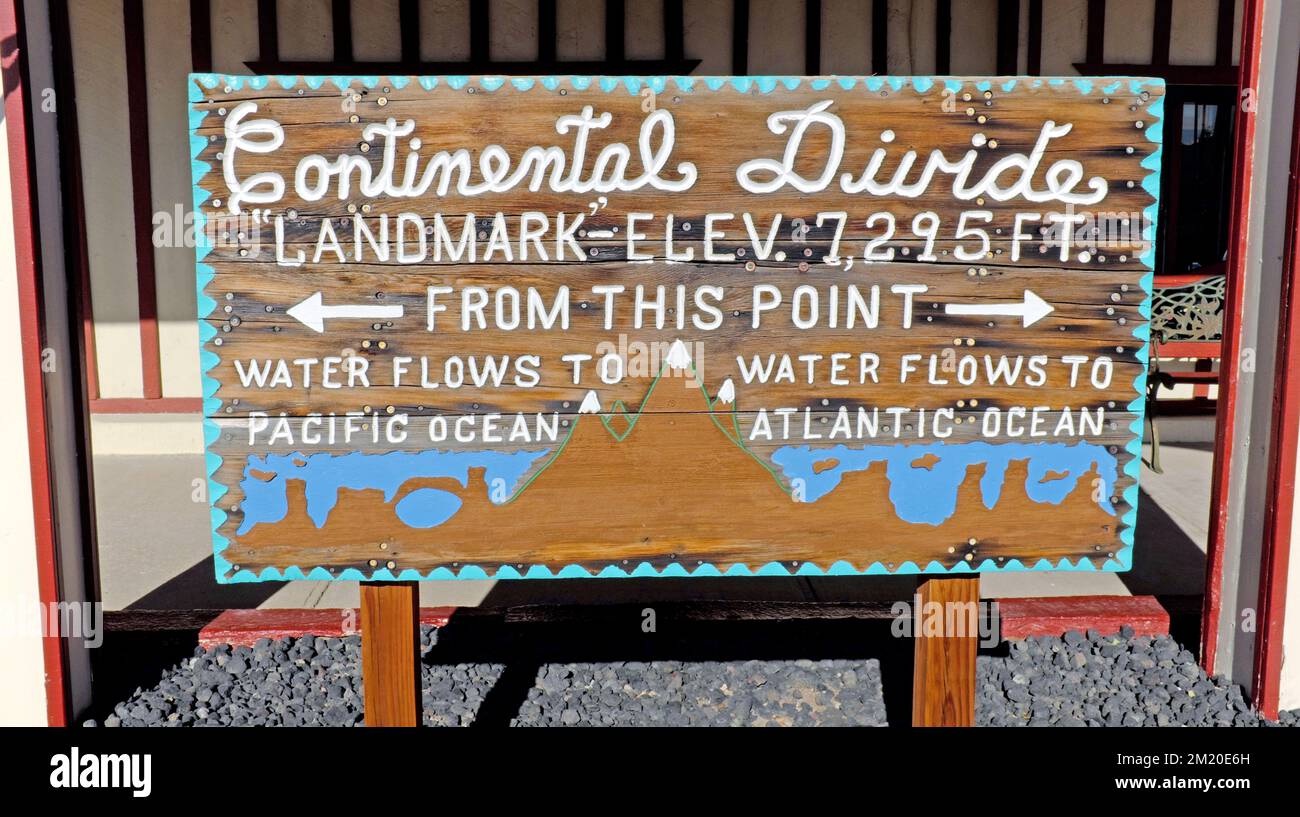 Continental Divide
"LANDMARK"-ELEV. 7,295 FT.
← FROM THIS POINT →
WATER FLOWS TO
PACIFIC OCEAN
WATER FLOWS TO
ATLANTIC OCEAN
a
a
a
a
alamy
Image ID: 2M20E6H
www.alamy.com